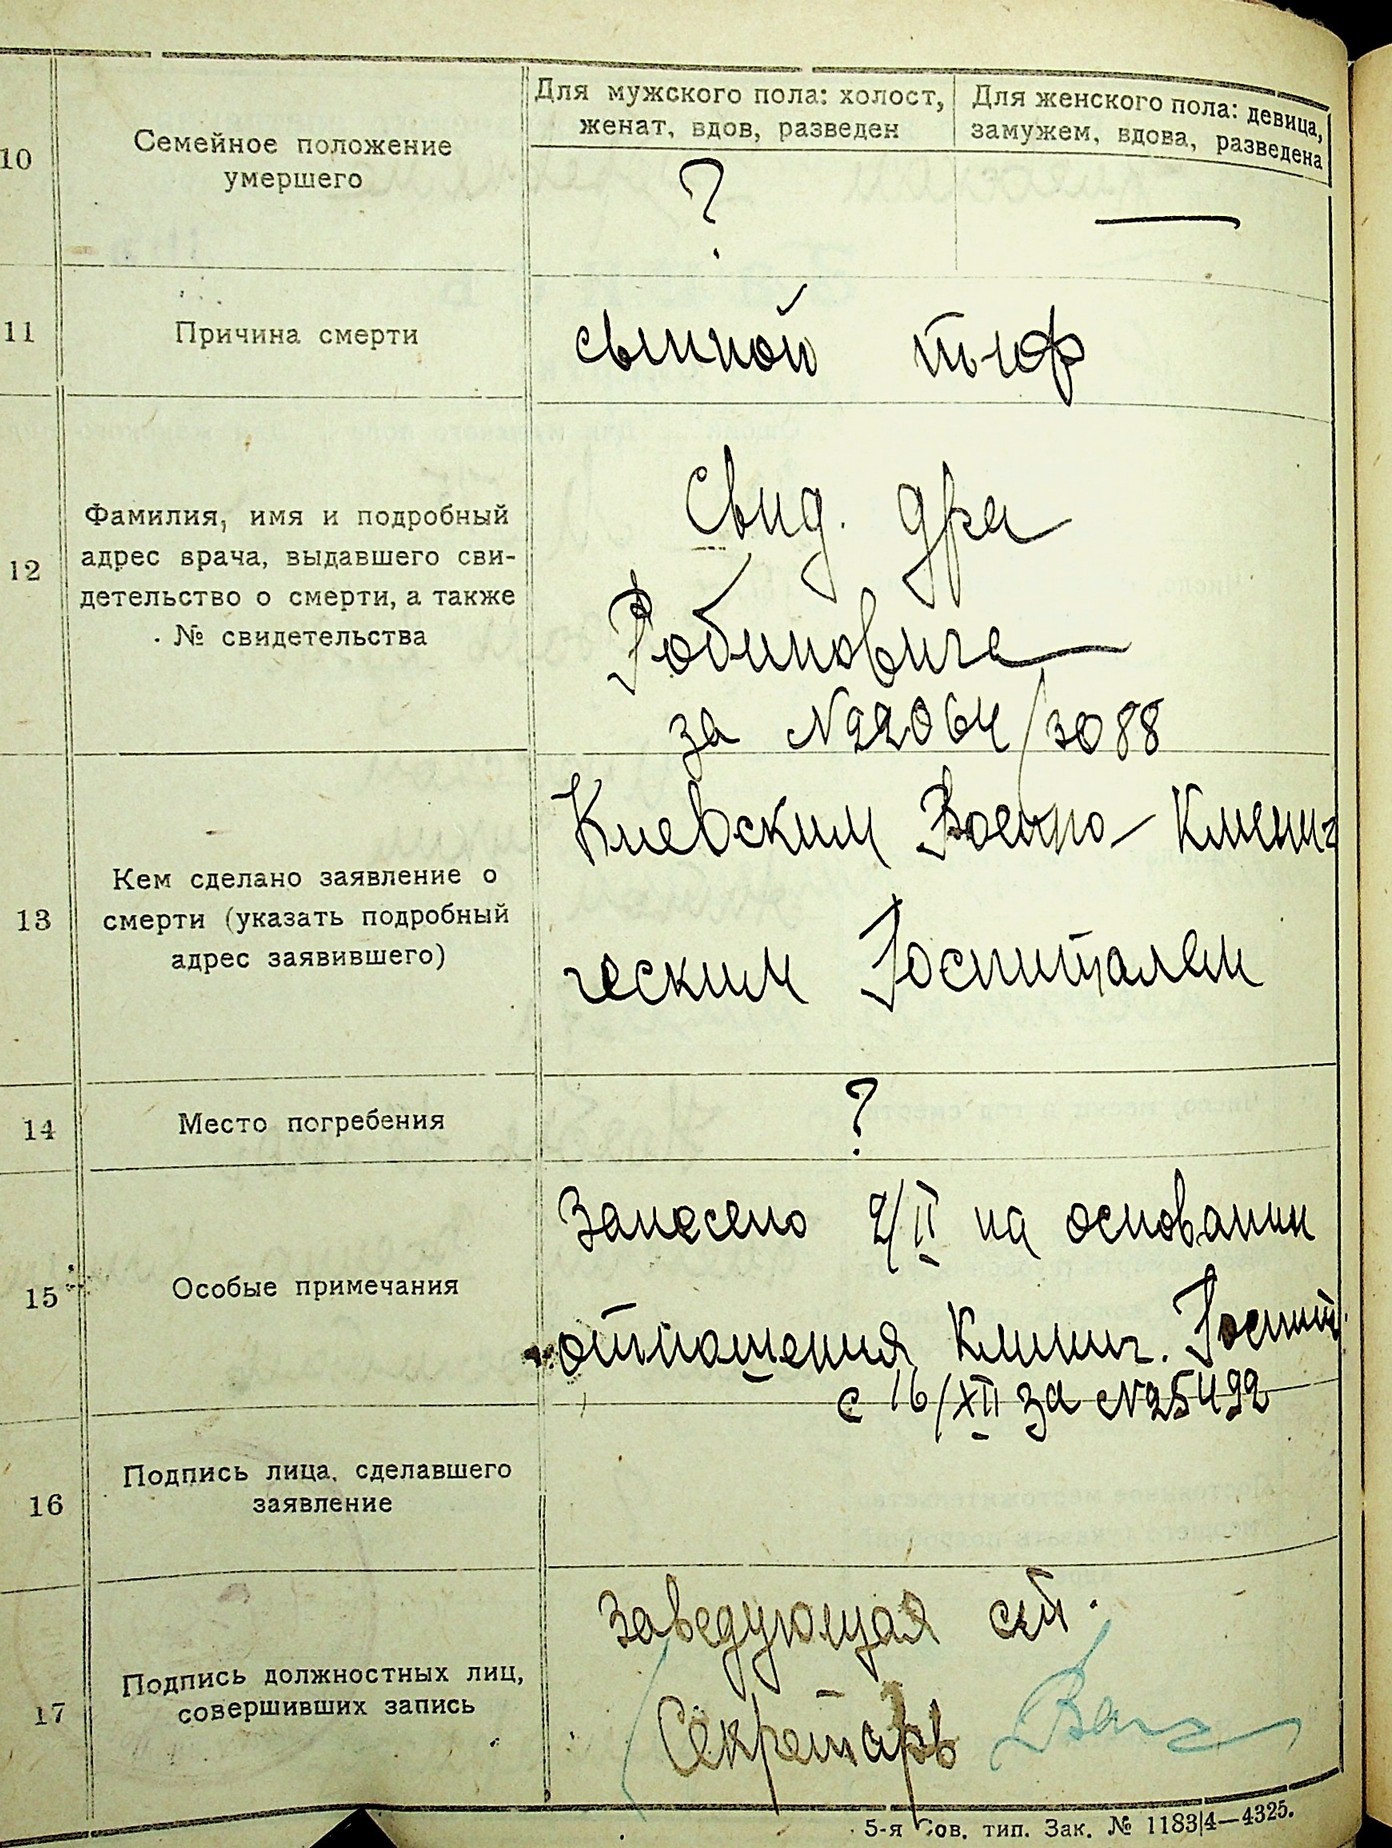 Для мужского пола: холост,
женат, вдов, разведен
Для женского пола: девица,
замужем, вдова, разведена
10
Семейное положение
умершего
?
—
11
Причина смерти
сыпной тиф
12
Фамилия, имя и подробный
адрес врача, выдавшего сви-
детельство о смерти, а также
№ свидетельства
Свид. д-ра
Робиновича
за №22064/3088
13
Кем сделано заявление о
смерти (указать подробный
адрес заявившего)
Киевским Военно-Клини-
ческим Госпиталем
14
Место погребения
?
15
Особые примечания
Занесено 2/II на основании
отношения Клинич. Госпит.
с 16/XII за №25492
16
Подпись лица, сделавшего
заявление
17
Подпись должностных лиц,
совершивших запись
Заведующая
Секретарь
5-я Сов. тип. Зак. № 1183|4—4325.